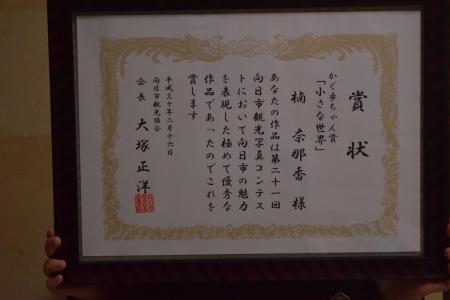 賞状
かぐ歩ちゃん賞
「小さな世界」
楠 奈那香 様
あなたの作品は第二十一回
向日市観光写真コンテス
トにおいて向日市の魅力
を表現した極めて優秀な
作品であったのでこれを
賞します
平成三十年二月十六日
向日市観光協会
会長 大塚正洋